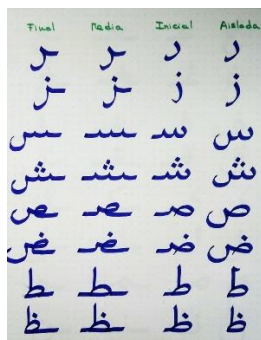 Final Media Inicial Aislada
ـر ـر ر ر
ـز ـز ز ز
ـس ـسـ سـ س
ـش ـشـ شـ ش
ـص ـصـ صـ ص
ـض ـضـ ضـ ض
ـط ـطـ طـ ط
ـظ ـظـ ظـ ظ